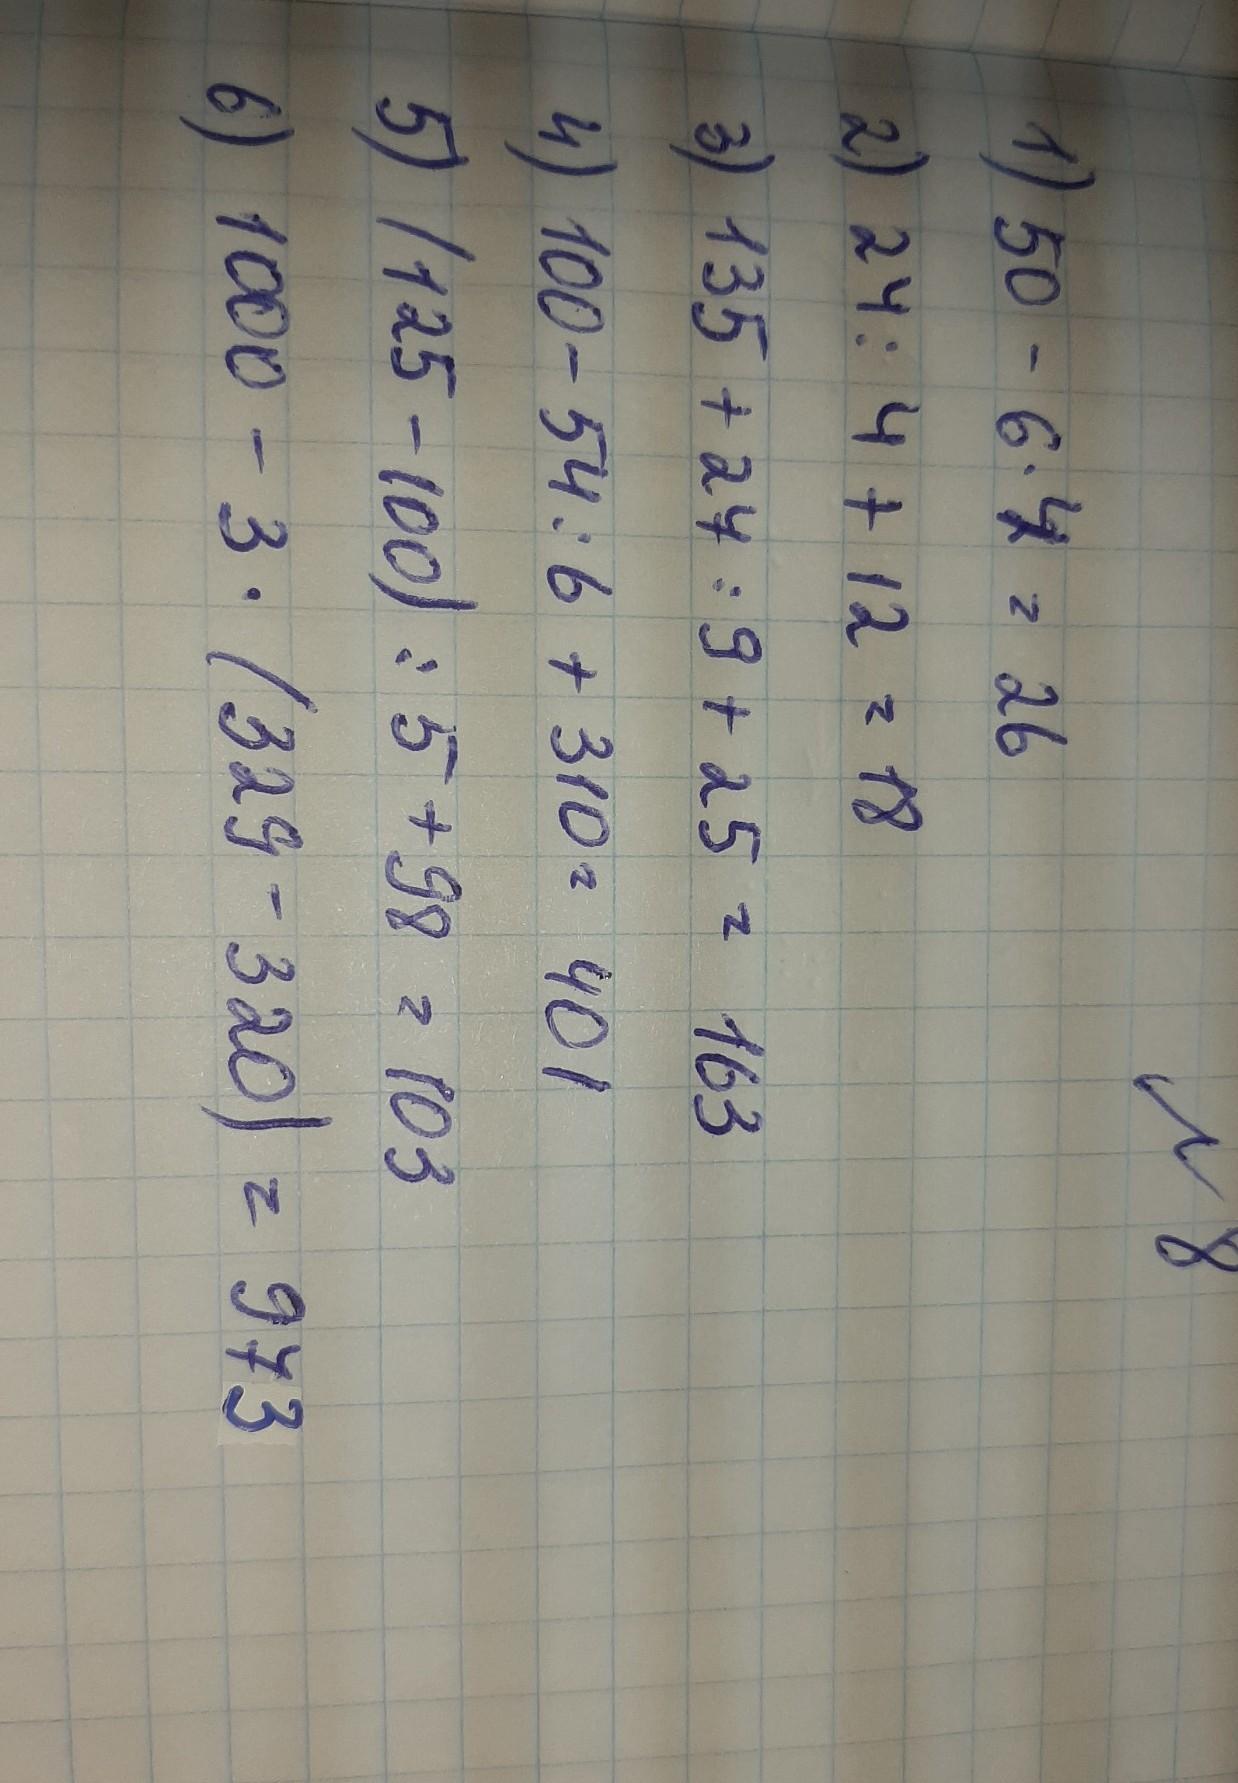 №8
1) 50 - 6 · 4 = 26
2) 24 : 4 + 12 = 18
3) 135 + 27 : 9 + 25 = 163
4) 100 - 54 : 6 + 310 = 401
5) (125 - 100) : 5 + 98 = 103
6) 1000 - 3 · (329 - 320) = 973